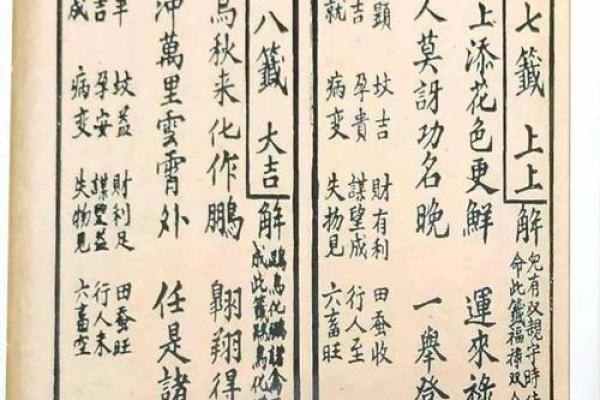 七籤 上上 解
有双親字時
命此籤福祿双
上添花色更鮮 運來祿
人莫訝功名晚 一舉登
顯 坟吉 財有利 田蚕收
吉 孕貴 謀望成 行人至
就 病变 失物見 六畜旺
八籤 大吉 解
鳥化鵬諸禽
成此籤鳥化
鳥秋来化作鵬 翱翔得
沖萬里雲霄外 任是諸
坟益 財利足 田蚕旺
吉 孕安 謀望益 行人未
成 病变 失物見 六畜空